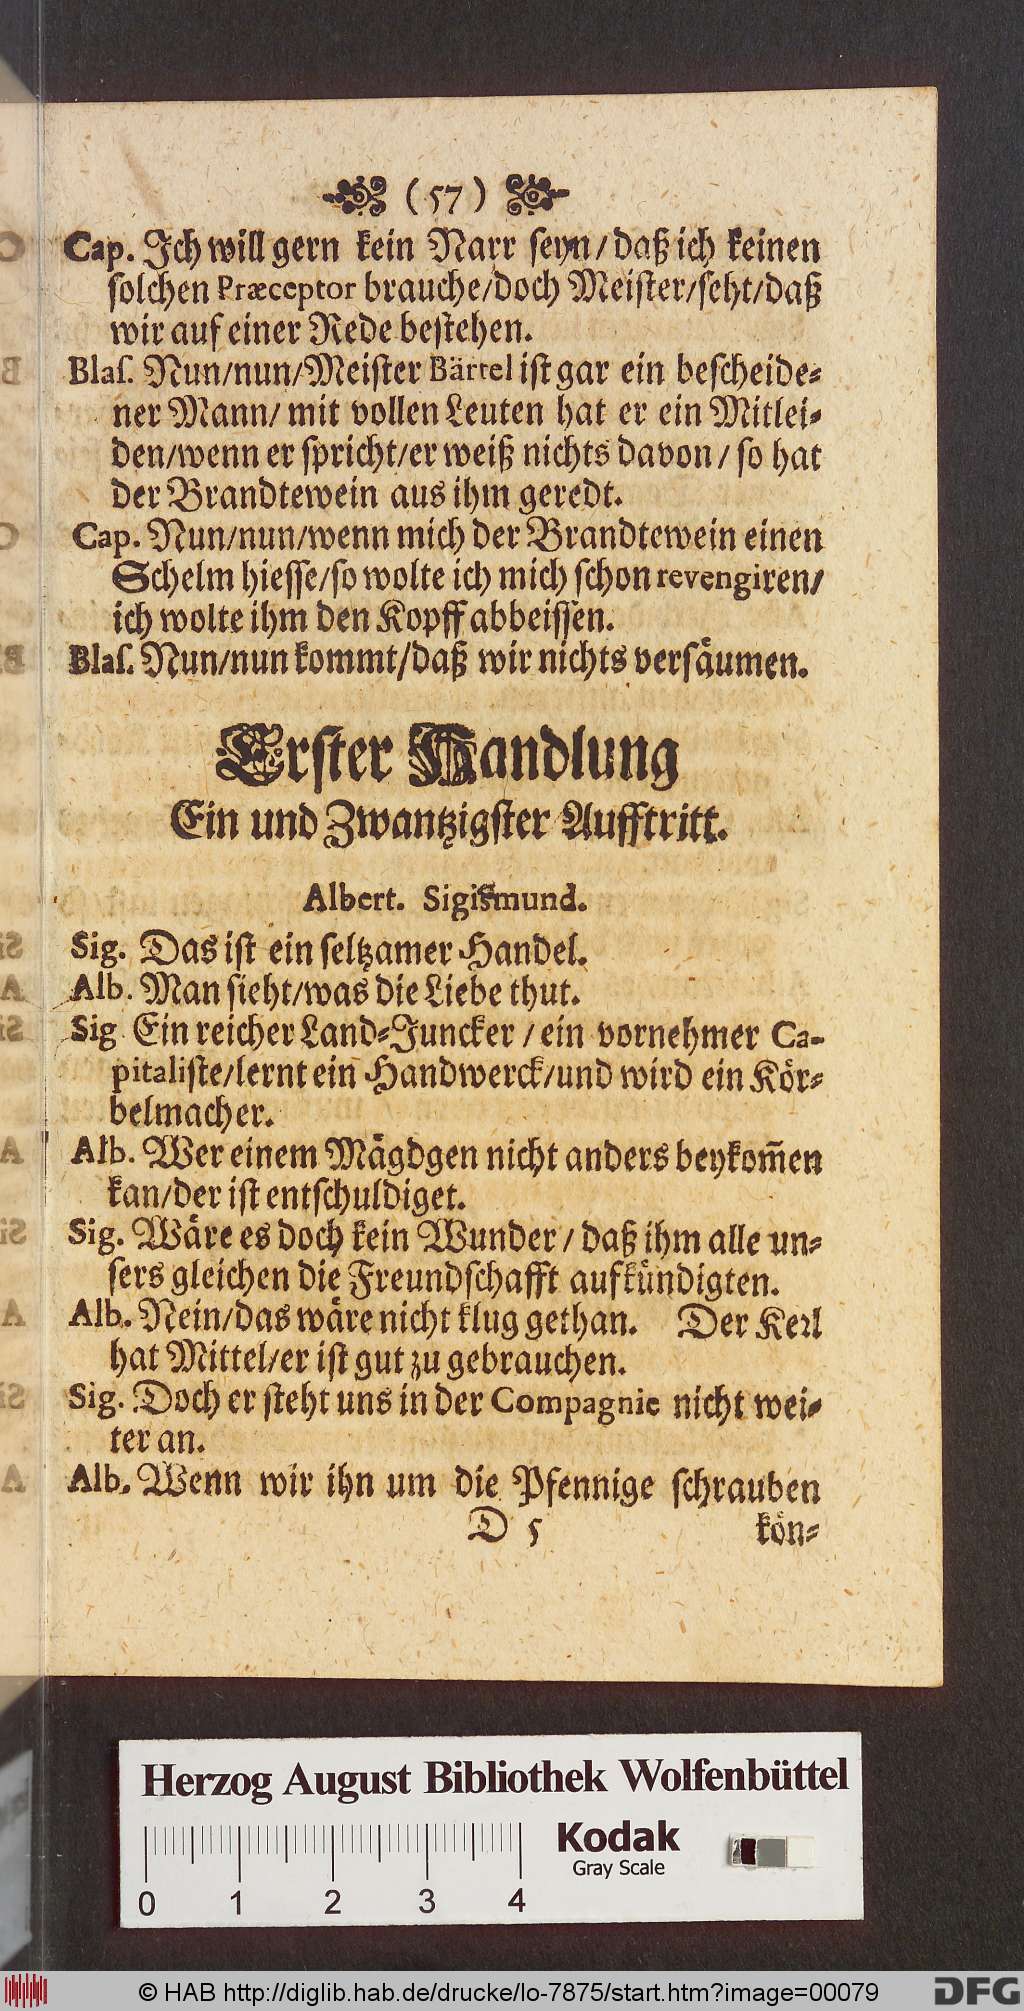 (57)
Cap. Ich will gern kein Narr seyn/daß ich keinen
solchen Præceptor brauche/doch Meister/seht/daß
wir auf einer Rede bestehen.
Blaſ. Nun/nun/Meister Bärtel ist gar ein bescheide-
ner Mann/ mit vollen Leuten hat er ein Mitlei-
den/wenn er spricht/er weiß nichts davon/ so hat
der Brandtewein aus ihm geredt.
Cap. Nun/nun/wenn mich der Brandtewein einen
Schelm hiesse/so wolte ich mich schon revengiren/
ich wolte ihm den Kopff abbeissen.
Blaſ. Nun/nun kommt/daß wir nichts versäumen.
Erster Handlung
Ein und Zwantzigster Aufftritt.
Albert. Sigismund.
Sig. Das ist ein seltzamer Handel.
Alb. Man sieht/was die Liebe thut.
Sig Ein reicher Land-Juncker / ein vornehmer Ca-
pitaliste/lernt ein Handwerck/und wird ein Kör-
belmacher.
Alb. Wer einem Mägdgen nicht anders beykom̃en
kan/der ist entschuldiget.
Sig. Wäre es doch kein Wunder / daß ihm alle un-
sers gleichen die Freundschafft aufkündigten.
Alb. Nein/das wäre nicht klug gethan. Der Kerl
hat Mittel/er ist gut zu gebrauchen.
Sig. Doch er steht uns in der Compagnie nicht wei-
ter an.
Alb. Wenn wir ihn um die Pfennige schrauben
D 5 kön-
Herzog August Bibliothek Wolfenbüttel
Kodak
Gray Scale
0 1 2 3 4
© HAB http://diglib.hab.de/drucke/lo-7875/start.htm?image=00079
DFG